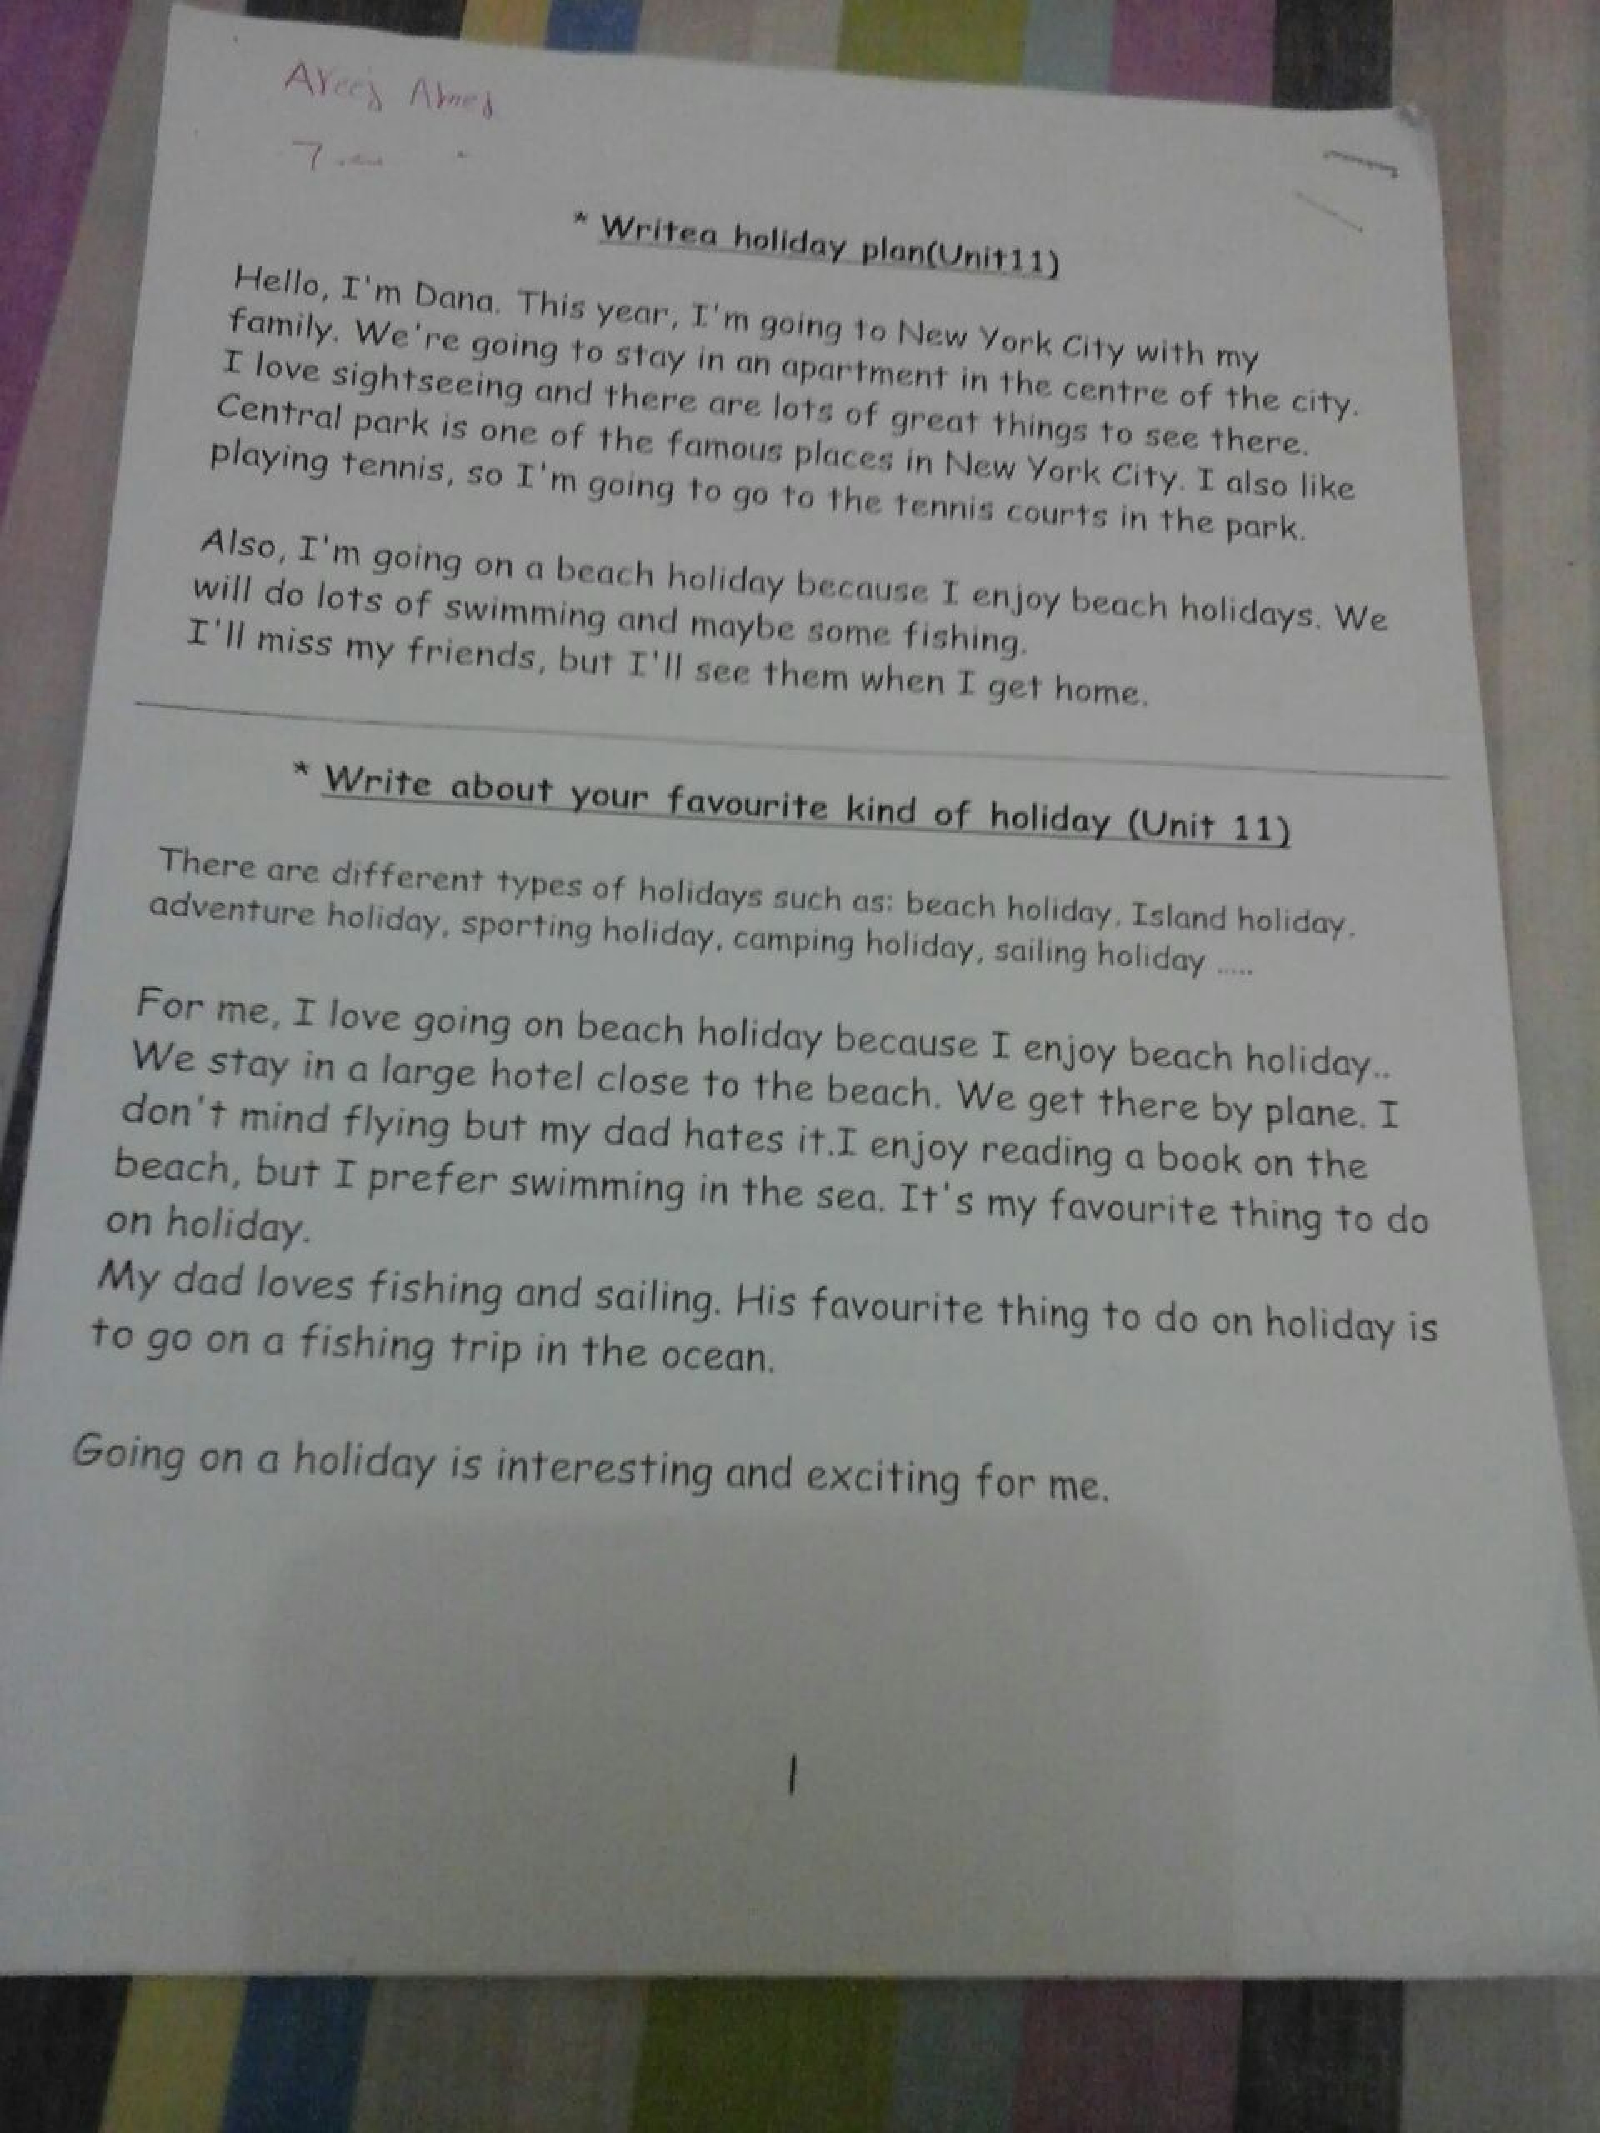 Areej Ahmed
7
* Writea holiday plan(Unit11)
Hello, I'm Dana. This year, I'm going to New York City with my
family. We're going to stay in an apartment in the centre of the city.
I love sightseeing and there are lots of great things to see there.
Central park is one of the famous places in New York City. I also like
playing tennis, so I'm going to go to the tennis courts in the park.
Also, I'm going on a beach holiday because I enjoy beach holidays. We
will do lots of swimming and maybe some fishing.
I'll miss my friends, but I'll see them when I get home.
* Write about your favourite kind of holiday (Unit 11)
There are different types of holidays such as: beach holiday, Island holiday,
adventure holiday, sporting holiday, camping holiday, sailing holiday .....
For me, I love going on beach holiday because I enjoy beach holiday..
We stay in a large hotel close to the beach. We get there by plane. I
don't mind flying but my dad hates it.I enjoy reading a book on the
beach, but I prefer swimming in the sea. It's my favourite thing to do
on holiday.
My dad loves fishing and sailing. His favourite thing to do on holiday is
to go on a fishing trip in the ocean.
Going on a holiday is interesting and exciting for me.
1